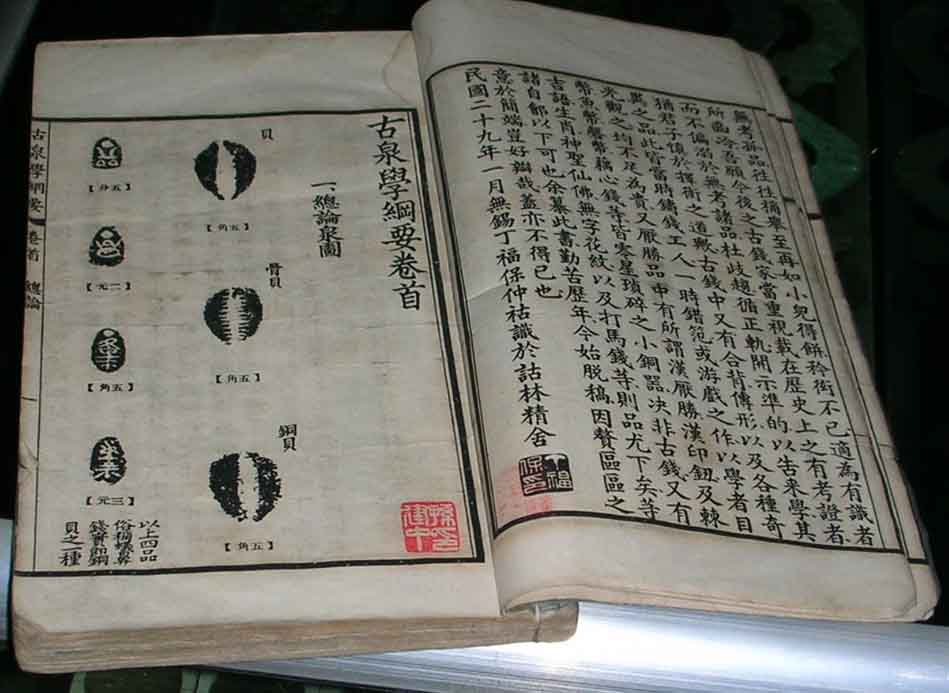 無考孤品往往摘舉至再如小兒得餅矜衒不已適為有識者
所齒冷吾願今後之古錢家當重視載在歷史上之有考證者
而不偏溺於無考諸品杜歧趨循正軌開示準的以告來學其
猶君子慎於擇術之道歟古錢中又有合背傳形以及各種奇
異之品此皆當時鑄錢工人一時錯笵或游戲之作以學者目
光觀之均不足為貴又厭勝品中有所謂漢厭勝漢印鈕及棘
幣魚幣磬幣藕心錢等皆零星瑣碎之小銅器決非古錢又有
吉語生肖神聖仙佛無字花紋以及打馬錢等則品尤下矣等
諸自鄶以下可也余纂此書勤苦歷年今始脫稿因贅區區之
意於簡端豈好辯哉蓋亦不得已也
民國二十九年一月無錫丁福保仲祜識於詁林精舍
丁福保印
古泉學綱要卷首
孫建中印
一、總論泉圖
貝
【角五】
骨貝
【角五】
銅貝
【角五】
【分五】
【元二】
【角五】
【元三】
以上四品
俗偁蟻鼻
錢實即銅
貝之一種
古泉學綱要
卷首
總論